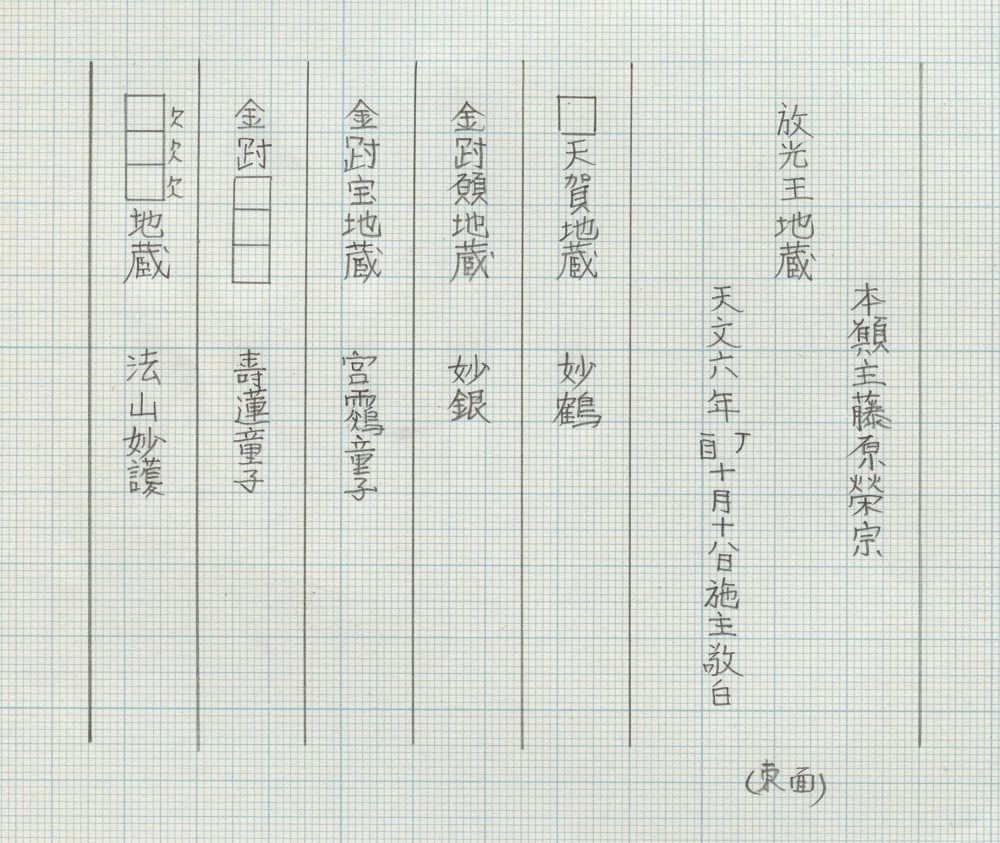 本願主藤原榮宗
放光王地蔵
天文六年丁酉十月十八日施主敬白
□天賀地蔵 妙鶴
金剛願地蔵 妙銀
金剛宝地蔵 宮靏童子
金剛□□□ 壽蓮童子
□□□地蔵 法山妙護
欠欠欠
(東面)